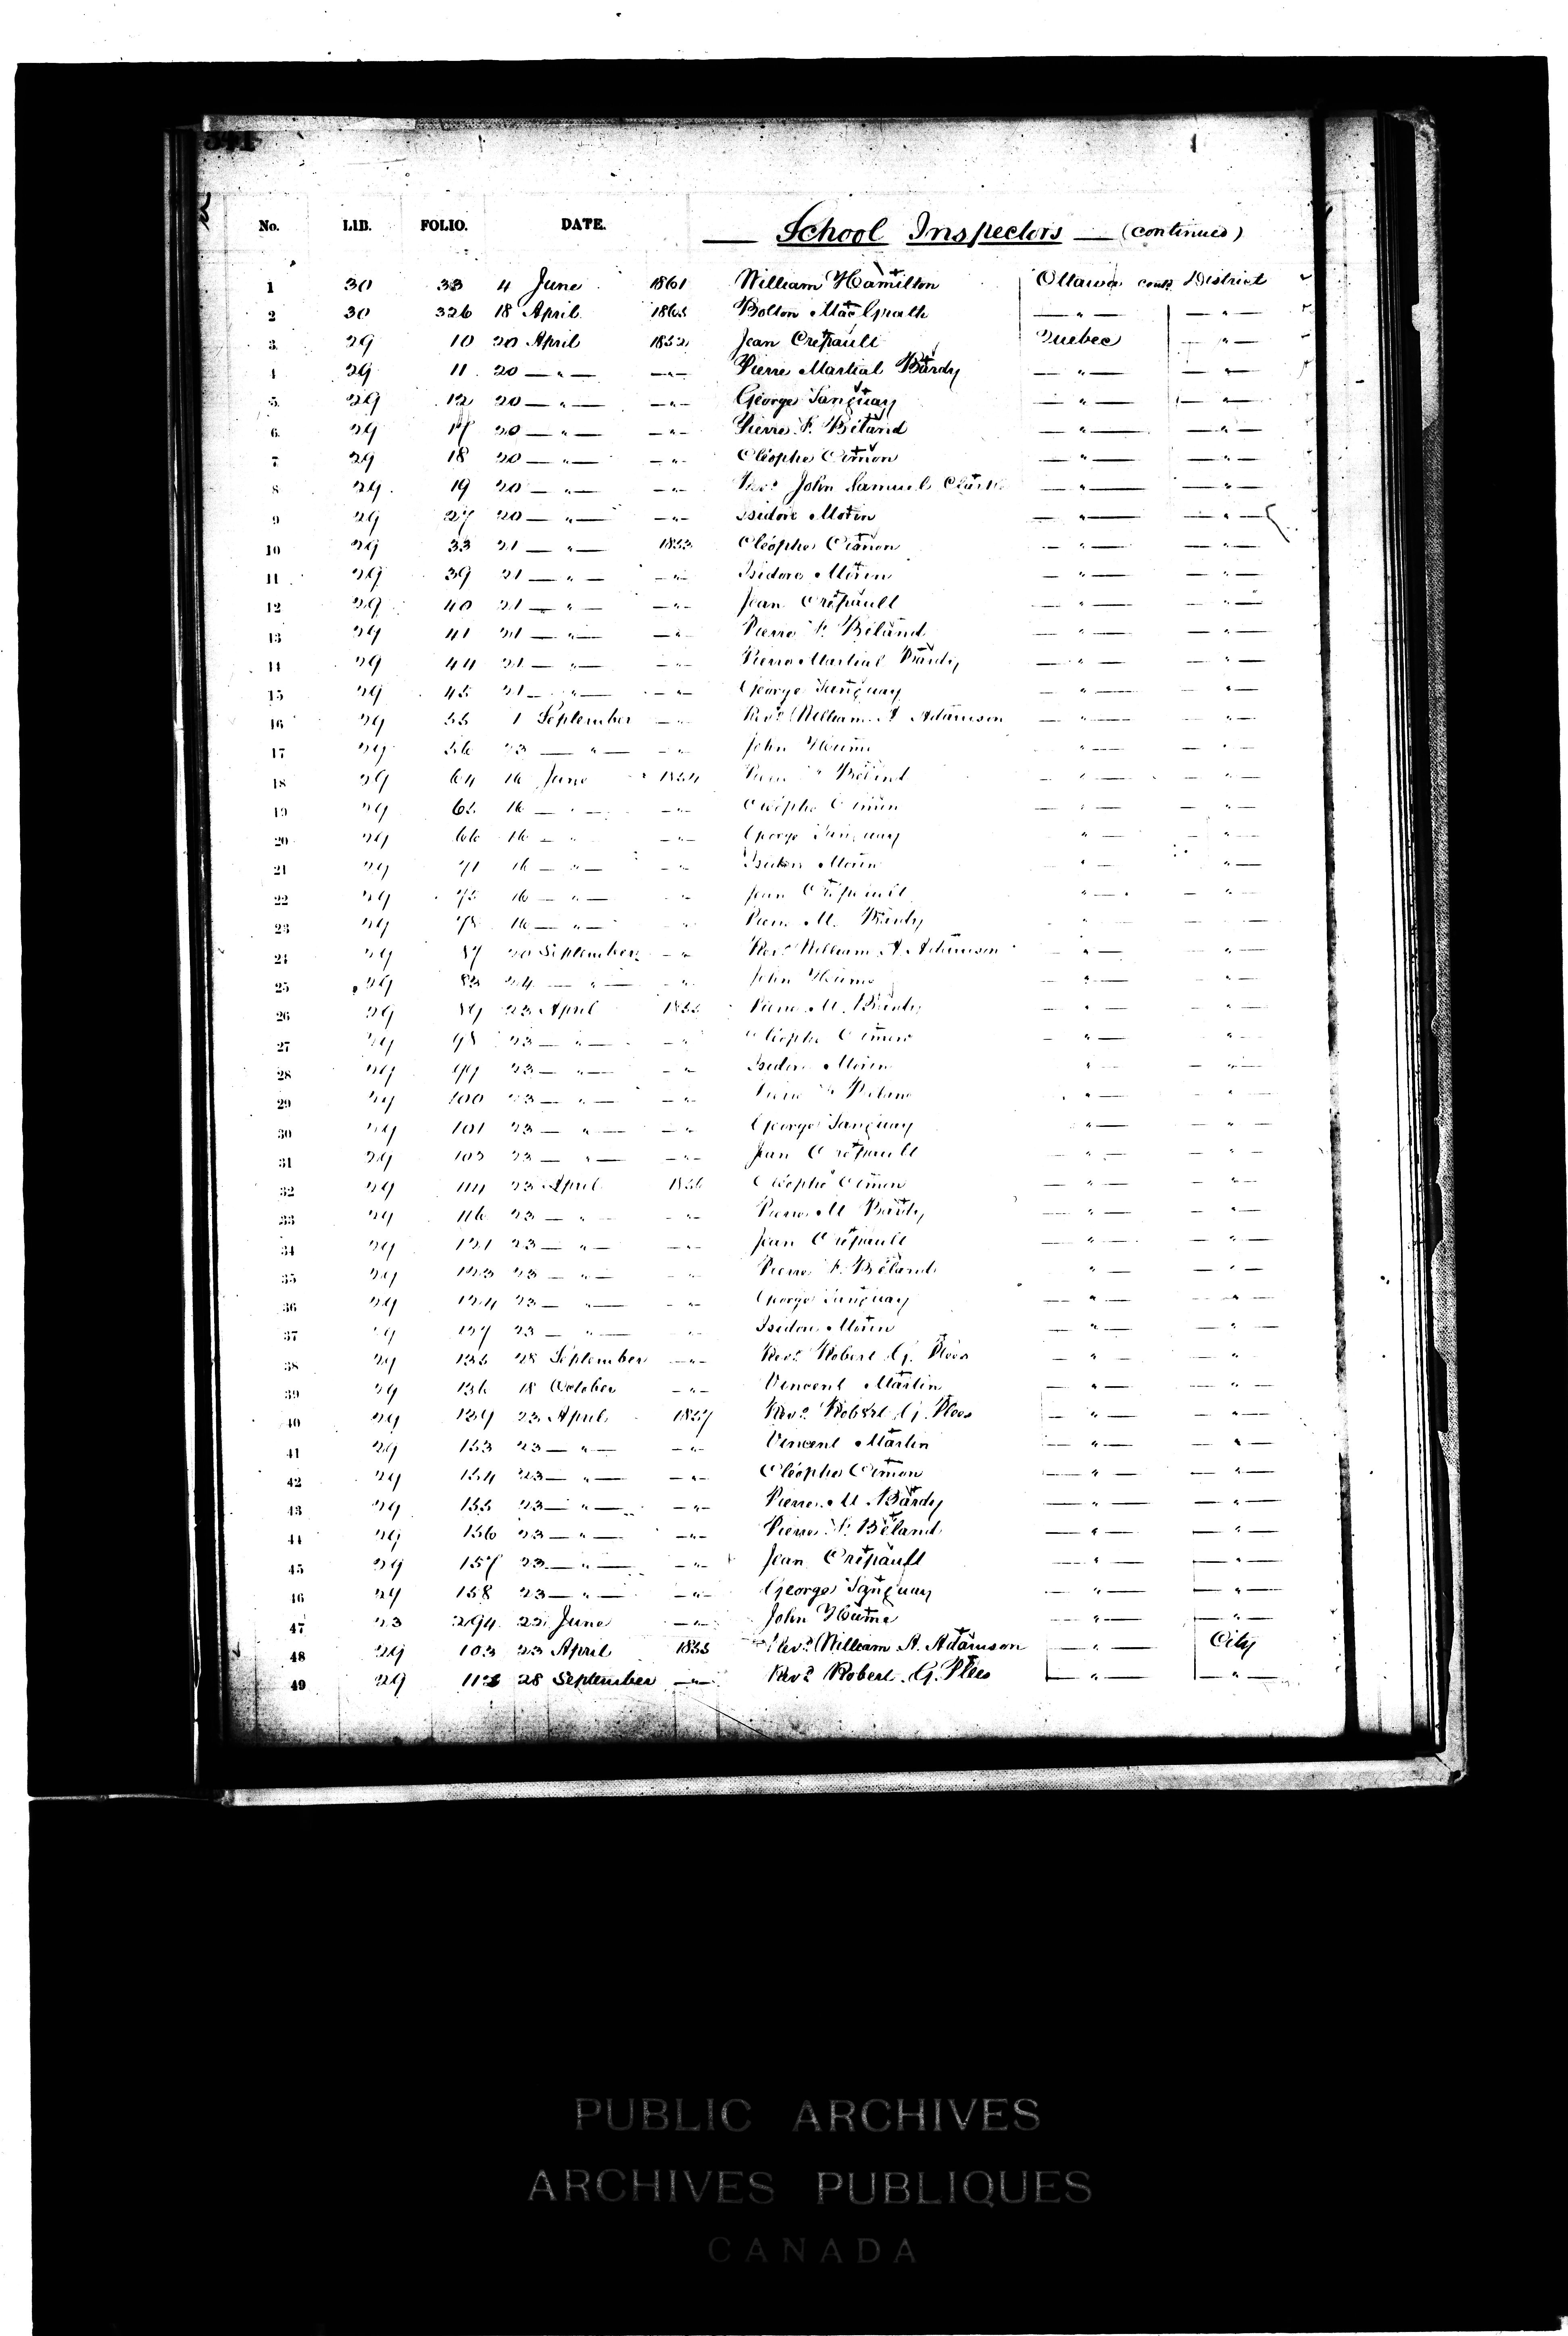 No. LIB. FOLIO. DATE. School Inspectors (continued)
1 30 33 4 June 1861 William Hamilton Ottawa District
2 30 326 18 April Bolton MacGrath — " — — " —
3 29 10 20 April 1852 Jean Crépault Quebec — " —
4 29 11 20 — " — — " — Pierre Martial Bardy — " — — " —
5 29 12 20 — " — — " — George Tanguay — " — — " —
6 29 17 20 — " — — " — Pierre F. Béland — " — — " —
7 29 18 20 — " — — " — Cléophe Cimon — " — — " —
8 29 19 20 — " — — " — Revd John Samuel Clark — " — — " —
9 29 27 20 — " — — " — Isidore Morin — " — — " —
10 29 33 21 — " — 1853 Cléophe Cimon — " — — " —
11 29 39 21 — " — — " — Isidore Morin — " — — " —
12 29 40 21 — " — — " — Jean Crépault — " — — " —
13 29 41 21 — " — — " — Pierre F. Béland — " — — " —
14 29 44 21 — " — — " — Pierre Martial Bardy — " — — " —
15 29 45 21 — " — — " — George Tanguay — " — — " —
16 29 55 1 September — " — Revd William A. Adamson — " — — " —
17 29 56 23 — " — — " — John Hume — " — — " —
18 29 64 16 June 1854 Pierre F. Béland — " — — " —
19 29 65 16 — " — — " — Cléophe Cimon — " — — " —
20 29 66 16 — " — — " — George Tanguay — " — — " —
21 29 71 16 — " — — " — Isidore Morin — " — — " —
22 29 75 16 — " — — " — Jean Crépault — " — — " —
23 29 16 — " — — " — Pierre M. Bardy — " — — " —
24 29 20 September — " — Revd William A. Adamson — " — — " —
25 29 83 24 — " — — " — John Hume — " — — " —
26 29 89 23 April 1855 Pierre M. Bardy — " — — " —
27 29 98 23 — " — — " — Cléophe Cimon — " — — " —
28 29 99 23 — " — — " — Isidore Morin — " — — " —
29 29 100 23 — " — — " — Pierre F. Béland — " — — " —
30 29 101 23 — " — — " — George Tanguay — " — — " —
31 29 23 — " — — " — Jean Crépault — " — — " —
32 29 114 23 April 1856 Cléophe Cimon — " — — " —
33 29 116 23 — " — — " — Pierre M Bardy — " — — " —
34 29 121 23 — " — — " — Jean Crépault — " — — " —
35 29 123 23 — " — — " — Pierre F. Béland — " — — " —
36 29 124 23 — " — — " — George Tanguay — " — — " —
37 29 127 23 — " — — " — Isidore Morin — " — — " —
38 29 135 28 September — " — Revd Robert G. Plees — " — — " —
39 29 136 18 October — " — Vincent Martin — " — — " —
40 29 139 23 April 1857 Revd Robert G. Plees — " — — " —
41 29 153 23 — " — — " — Vincent Martin — " — — " —
42 29 154 23 — " — — " — Cléophe Cimon — " — — " —
43 29 155 23 — " — — " — Pierre M. Bardy — " — — " —
44 29 156 23 — " — — " — Pierre F. Béland — " — — " —
45 29 157 23 — " — — " — Jean Crépault — " — — " —
46 29 158 23 — " — — " — George Tanguay — " — — " —
47 23 294 22 June — " — John Hume — " — — " —
48 29 103 23 April 1855 Revd William A. Adamson — " — City
49 29 28 September — " — Revd Robert G. Plees — " — — " —
PUBLIC ARCHIVES
ARCHIVES PUBLIQUES
CANADA